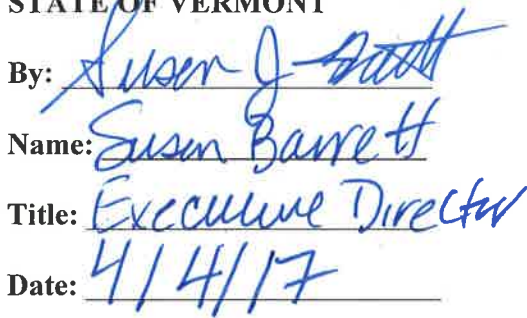 STATE OF VERMONT
By: Susan J Barrett
Name: Susan Barrett
Title: Executive Director
Date: 4/4/17